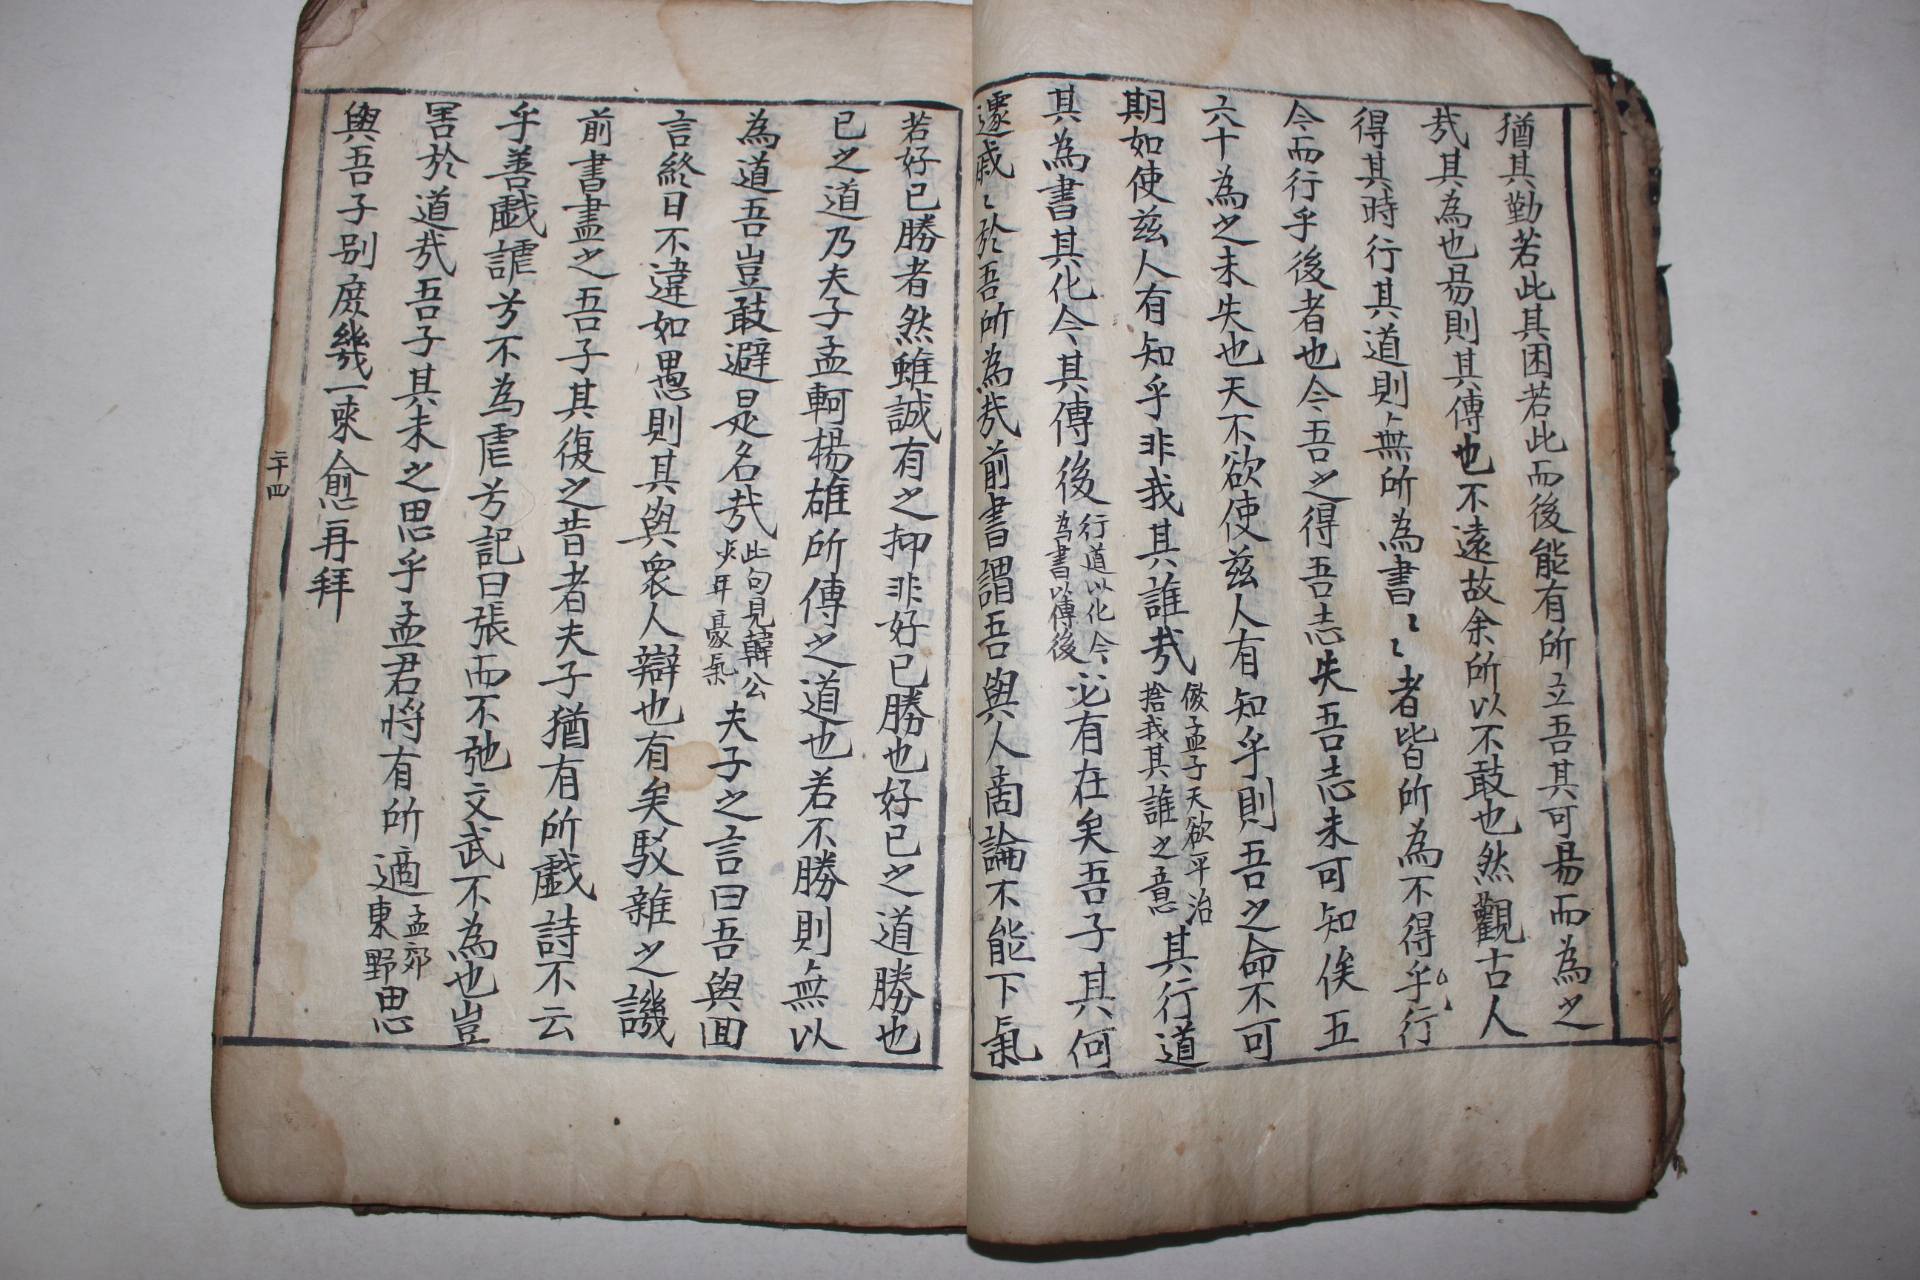 猶其勤若此其困若此而後能有所立吾其可易而為之
哉其為也易則其傳也不遠故余所以不敢也然觀古人
得其時行其道則無所為書〻〻者皆所為不得乎行
今而行乎後者也今吾之得吾志失吾志未可知俟五
六十為之未失也天不欲使茲人有知乎則吾之命不可
期如使茲人有知乎非我其誰哉
倣孟子天欲平治
捨我其誰之意
其行道
其為書其化今其傳後
行道以化今
為書以傳後
必有在矣吾子其何
遽戚〻於吾所為哉前書謂吾與人商論不能下氣
若好已勝者然雖誠有之抑非好已勝也好已之道勝也
已之道乃夫子孟軻楊雄所傳之道也若不勝則無以
為道吾豈敢避是名哉
此句見韓公
少年豪氣
夫子之言曰吾與回
言終日不違如愚則其與衆人辯也有矣駁雜之譏
前書盡之吾子其復之昔者夫子猶有所戲詩不云
乎善戲謔兮不為虐兮記曰張而不弛文武不為也豈
害於道哉吾子其未之思乎孟君將有所適
孟郊
東野
思
與吾子別庶幾一來愈再拜
二十四